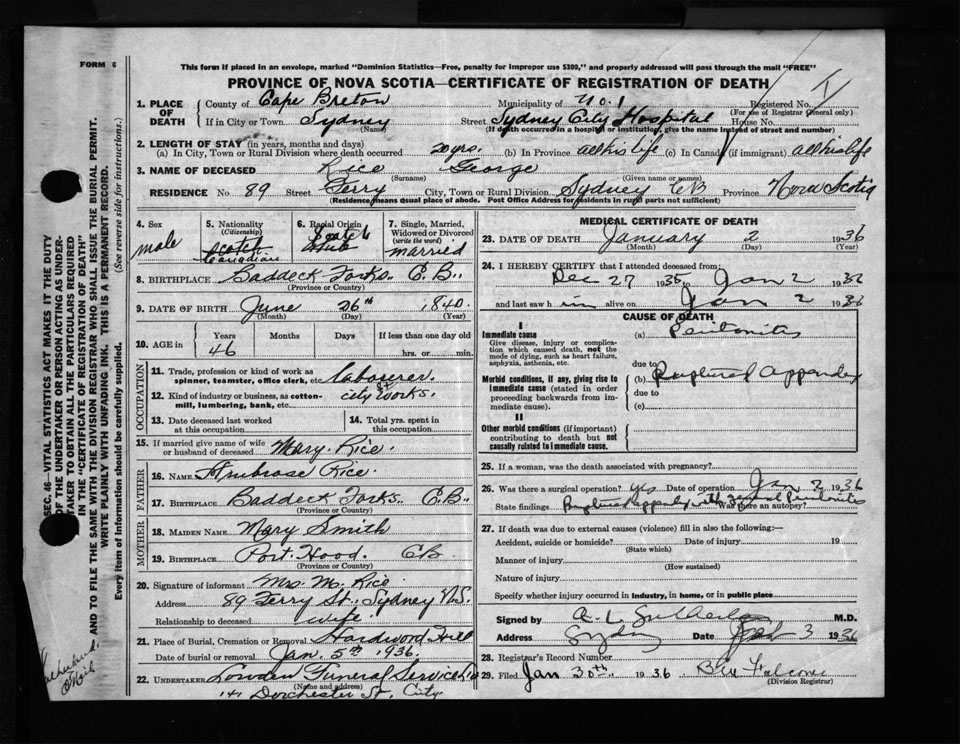 FORM 6
This form if placed in an envelope, marked "Dominion Statistics—Free, penalty for improper use $300," and properly addressed will pass through the mail "FREE"
PROVINCE OF NOVA SCOTIA—CERTIFICATE OF REGISTRATION OF DEATH
SEC. 46—VITAL STATISTICS ACT MAKES IT THE DUTY
OF THE UNDERTAKER OR PERSON ACTING AS UNDER-
TAKER TO OBTAIN ALL THE PARTICULARS REQUIRED
IN THE "CERTIFICATE OF REGISTRATION OF DEATH"
AND TO FILE THE SAME WITH THE DIVISION REGISTRAR WHO SHALL ISSUE THE BURIAL PERMIT.
WRITE PLAINLY WITH UNFADING INK. THIS IS A PERMANENT RECORD.
Every item of information should be carefully supplied. (See reverse side for instructions.)
1. PLACE OF DEATH
County of Cape Breton Municipality of No. 1 Registered No.
(For use of Registrar General only)
If in City or Town Sydney Street Sydney City Hospital House No.
(Name) (If death occurred in a hospital or institution, give the name instead of street and number)
2. LENGTH OF STAY (in years, months and days)
(a) In City, Town or Rural Division where death occurred 20 yrs. (b) In Province all his life (c) In Canada (if immigrant) all his life
3. NAME OF DECEASED Rice George
(Surname) (Given name or names)
RESIDENCE No. 89 Street Ferry City, Town or Rural Division Sydney CB Province Nova Scotia
(Residence means usual place of abode. Post Office Address for residents in rural parts not sufficient)
4. Sex male
5. Nationality (Citizenship) Scotch Canadian
6. Racial Origin Scotch
7. Single, Married, Widowed or Divorced (write the word) married
8. BIRTHPLACE Baddeck Forks. C.B.,
(Province or Country)
9. DATE OF BIRTH June 26th, 1840.
(Month) (Day) (Year)
10. AGE in Years Months Days If less than one day old
46 hrs. or min.
OCCUPATION
11. Trade, profession or kind of work as
spinner, teamster, office clerk, etc. labourer
12. Kind of industry or business, as cotton-
mill, lumbering, bank, etc. City Works.
13. Date deceased last worked
at this occupation
14. Total years spent in
this occupation
15. If married give name of wife
or husband of deceased Mary. Rice
FATHER
16. NAME Ambrose Rice.
17. BIRTHPLACE Baddeck Forks. C.B.
(Province or Country)
MOTHER
18. MAIDEN NAME Mary Smith
19. BIRTHPLACE Port Hood. CB.
(Province or Country)
20. Signature of informant Mrs. M. Rice
Address 89 Ferry St., Sydney N.S.
Relationship to deceased wife
21. Place of Burial, Cremation or Removal Hardwood Hill
Date of burial or removal Jan. 5th 1936.
22. UNDERTAKER Lowden Funeral Service
(Name and address)
141 Dorchester St, City
MEDICAL CERTIFICATE OF DEATH
23. DATE OF DEATH January 2 1936
(Month) (Day) (Year)
24. I HEREBY CERTIFY that I attended deceased from:
Dec 27 1935 to Jan 2 1936
and last saw him alive on Jan 2 1936
CAUSE OF DEATH
I
Immediate cause
Give disease, injury or complica-
tion which caused death, not the
mode of dying, such as heart failure,
asphyxia, asthenia, etc.
(a) Peritonitis
due to
Morbid conditions, if any, giving rise to
immediate cause (stated in order
proceeding backwards from im-
mediate cause).
(b) Ruptured Appendix
due to
(c)
II
Other morbid conditions (if important)
contributing to death but not
causally related to immediate cause.
25. If a woman, was the death associated with pregnancy?
26. Was there a surgical operation? yes Date of operation Jan 2 1936
State findings Ruptured appendix with Peritonitis Was there an autopsy?
27. If death was due to external causes (violence) fill in also the following:—
Accident, suicide or homicide? Date of injury 19
(State which)
Manner of injury
(How sustained)
Nature of injury
Specify whether injury occurred in industry, in home, or in public place
Signed by M.D.
Address Sydney Date 3 1936
28. Registrar's Record Number
29. Filed Jan 30th. 1936
(Division Registrar)